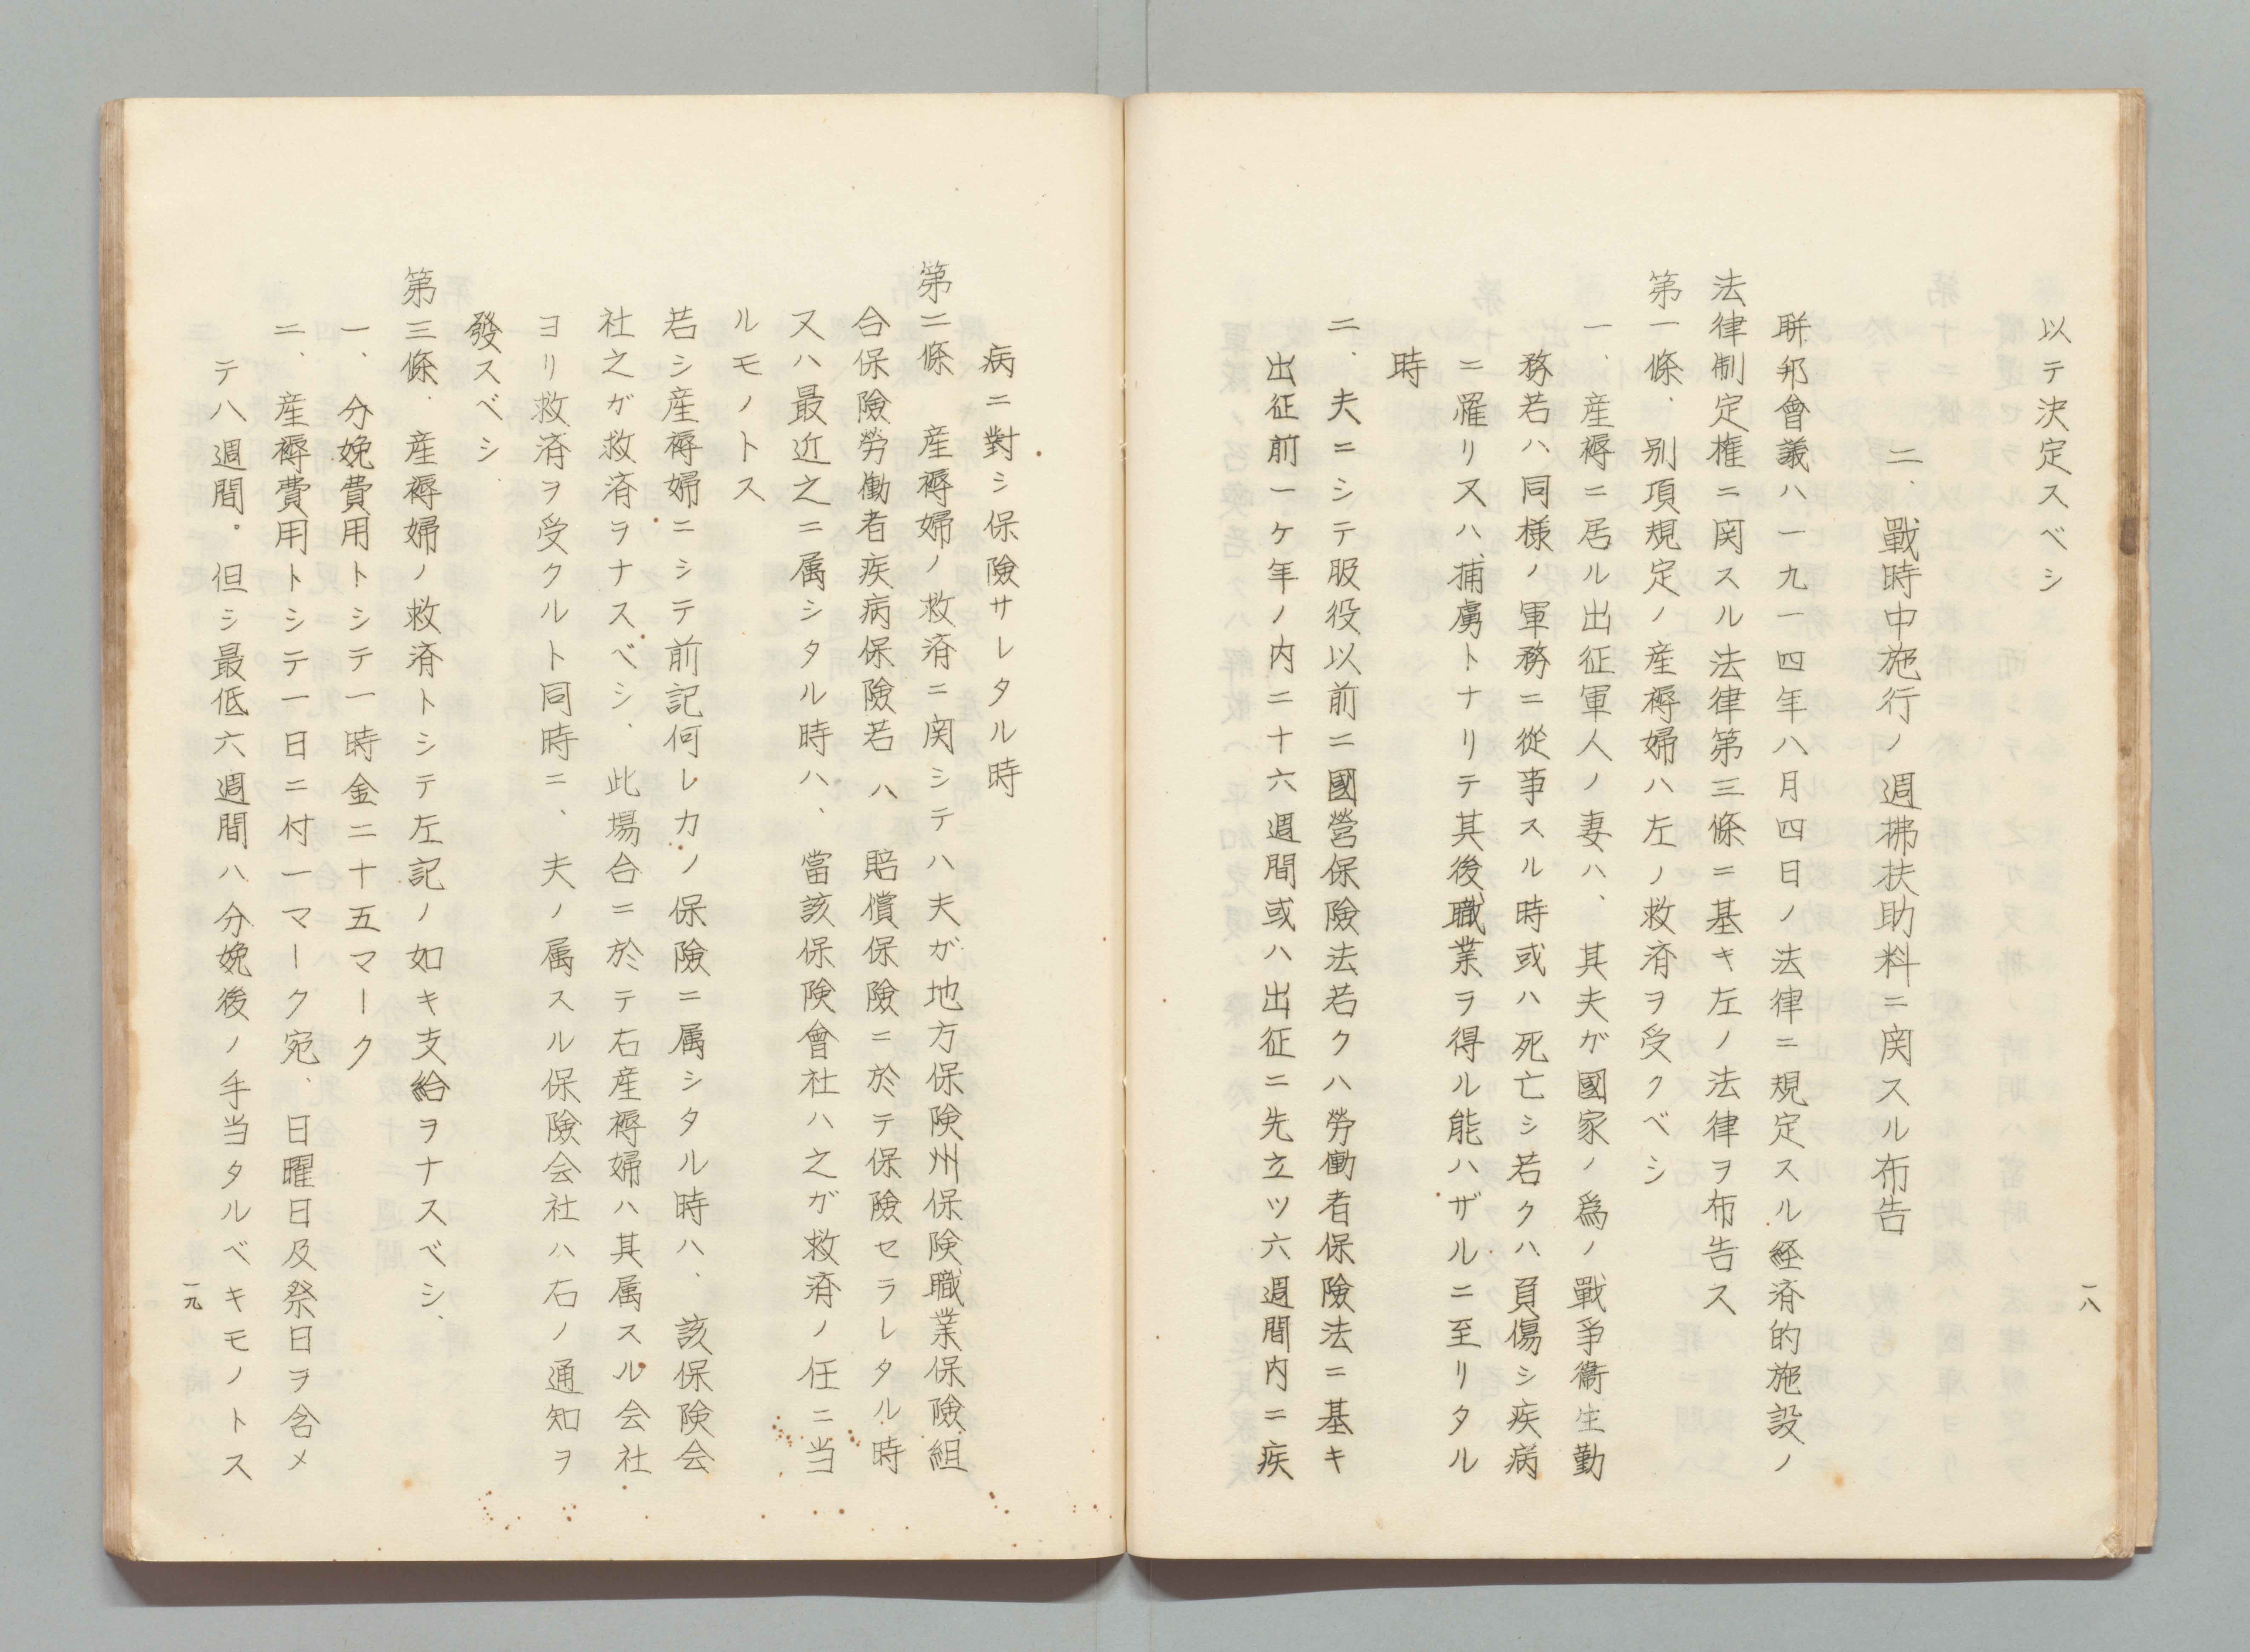 以テ決定スベシ
二、戰時中施行ノ週拂扶助料ニ関スル布告
聨邦會議ハ一九一四年八月四日ノ法律ニ規定スル経済的施設ノ
法律制定権ニ関スル法律第三條ニ基キ左ノ法律ヲ布告ス
第一條、別項規定ノ産褥婦ハ左ノ救済ヲ受クベシ
一、産褥ニ居ル出征軍人ノ妻ハ、其夫ガ國家ノ爲ノ戰爭衞生勤
務若ハ同様ノ軍務ニ從事スル時或ハ死亡シ若クハ負傷シ疾病
ニ罹リ又ハ捕虜トナリテ其後職業ヲ得ル能ハザルニ至リタル
時
二、夫ニシテ服役以前ニ國營保險法若クハ勞働者保險法ニ基キ
出征前一ケ年ノ内ニ十六週間或ハ出征ニ先立ツ六週間内ニ疾
一八
病ニ對シ保險サレタル時
第二條 産褥婦ノ救済ニ関シテハ夫ガ地方保険州保険職業保險組
合保險勞働者疾病保險若ハ賠償保險ニ於テ保險セラレタル時
又ハ最近之ニ属シタル時ハ、當該保険會社ハ之ガ救済ノ任ニ当
ルモノトス
若シ産褥婦ニシテ前記何レカノ保険ニ属シタル時ハ、該保険会
社之ガ救済ヲナスベシ、此場合ニ於テ右産褥婦ハ其属スル会社
ヨリ救済ヲ受クルト同時ニ、夫ノ属スル保険会社ハ右ノ通知ヲ
發スベシ
第三條、産褥婦ノ救済トシテ左記ノ如キ支給ヲナスベシ、
一、分娩費用トシテ一時金二十五マーク
二、産褥費用トシテ一日ニ付一マーク宛、日曜日及祭日ヲ含メ
テ八週間。但シ最低六週間ハ分娩後ノ手当タルベキモノトス
一九